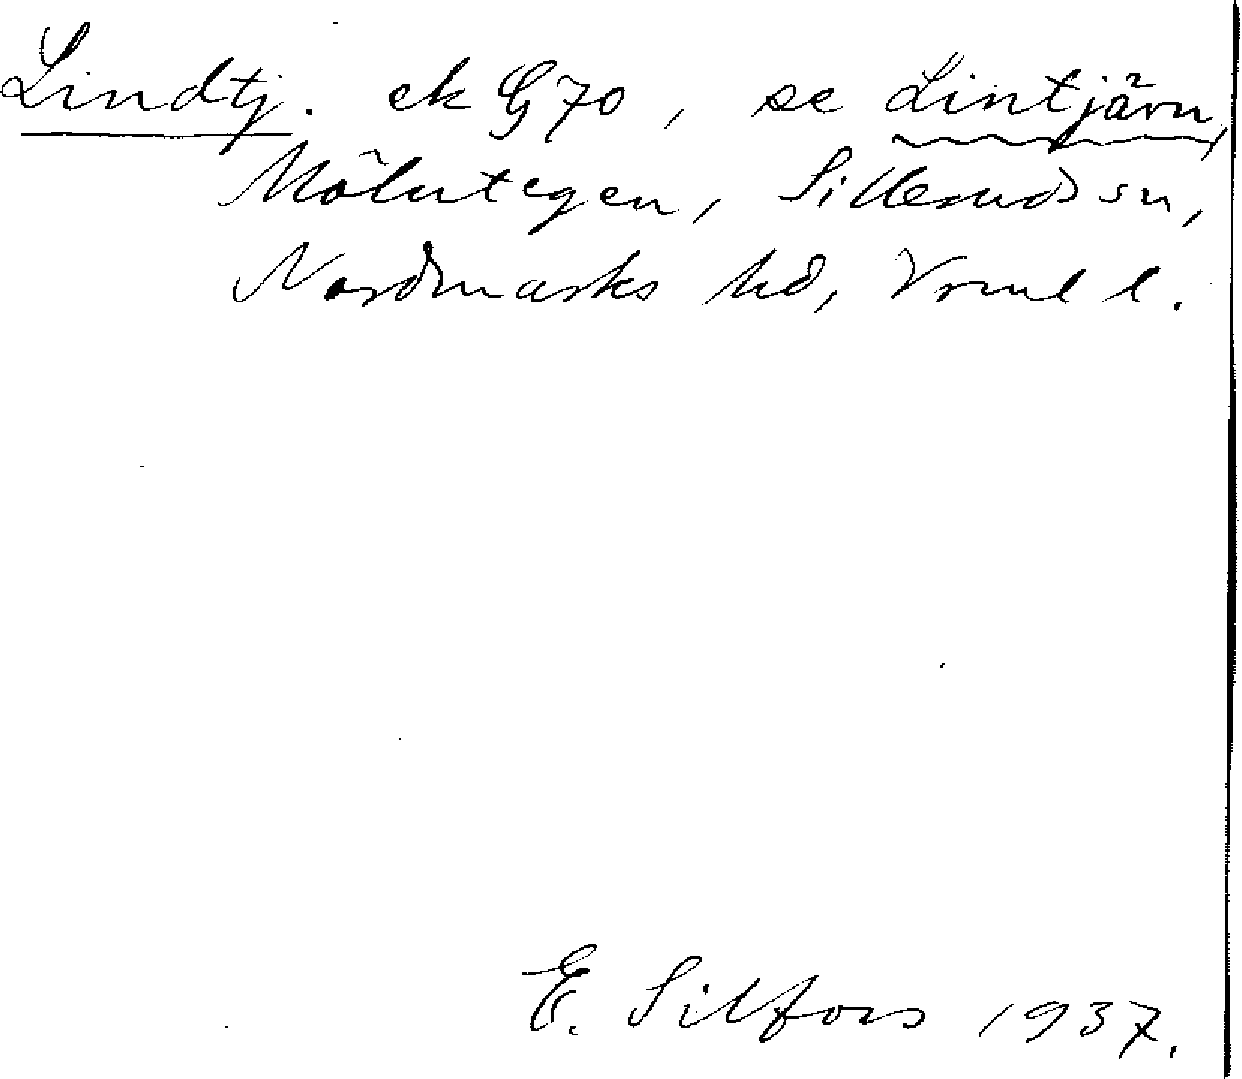 Lindtj. ek G70, se Lintjärn,
Mölntegen, Silleruds sn,
Nordmarks hd, Vrml l.
E. Silfors 1937.